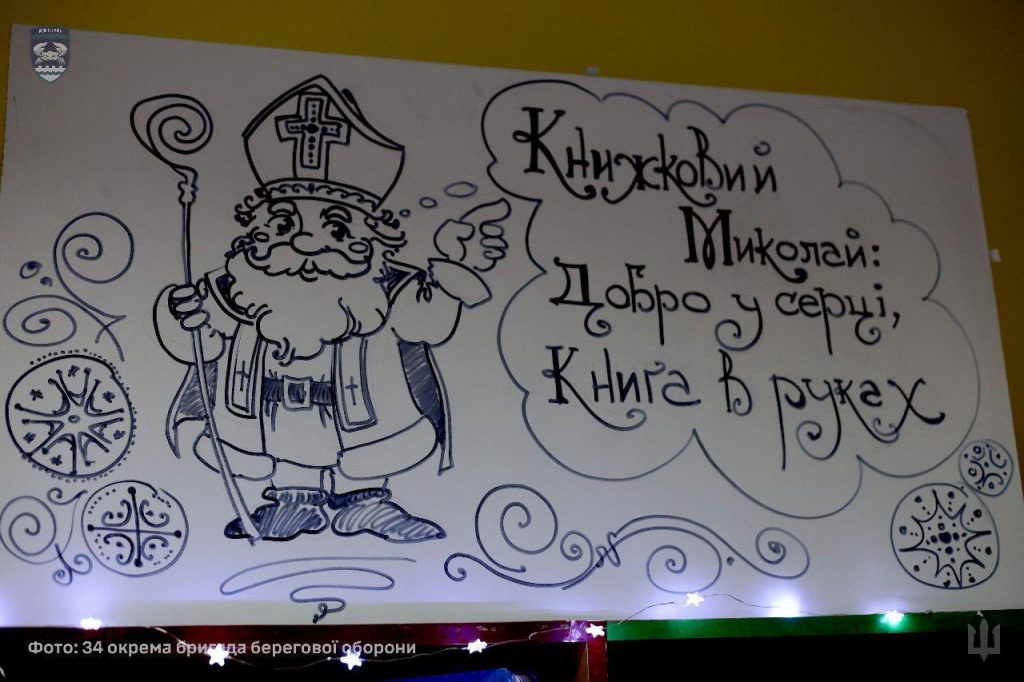 Книжковий
Миколай:
Добро у серці,
Книга в руках
Фото: 34 окрема бригада берегової оборони